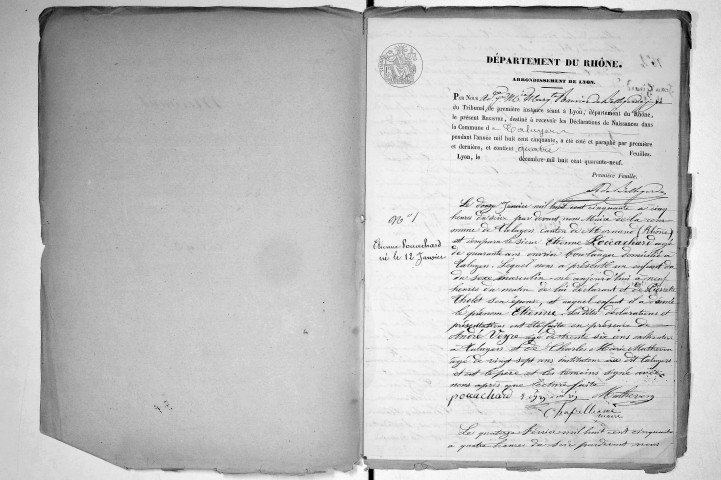 DÉPARTEMENT DU RHÔNE.
ARRONDISSEMENT DE LYON.
PAR NOUS
du Tribunal, de première instance séant à Lyon, département du Rhône,
le présent REGISTRE, destiné à recevoir les Déclarations de Naissances dans
la Commune d e Taluyers
pendant l'année mil huit cent cinquante, a été coté et paraphé par première
et dernière, et contient quatre Feuilles.
Lyon, le décembre mil huit cent quarante-neuf.
Première Feuille.
No 1
Etienne Pouachard
né le 12 Janvier
Le douze Janvier mil huit cent cinquante à cinq
heures du soir par devant nous Maire de la com
mune de Taluyers canton de Mornant (Rhône)
est comparu le sieur Etienne Pouachard âgé
de quarante ans ouvrier boulanger domicilié à
Taluyers. Lequel nous a présenté un enfant du
du sexe masculin né aujourd'hui à neuf
heures du matin de lui déclarant et de Pierrette
son épouse, et auquel enfant il a donné
le prénom Etienne. Les dites déclarations et
présentations ont été faite en présence de
André Veyre âgé de trente six ans
à Taluyers et de Charles Marie Matheron
âgé de vingt sept ans instituteur au dit Taluyers
et ont le père et les temoins signé avec
nous après que lecture faite
pouachard Matheron
Chapelle
maire
Le quatorze Février mil huit cent cinquante
à quatre heures du soir pardevant nous